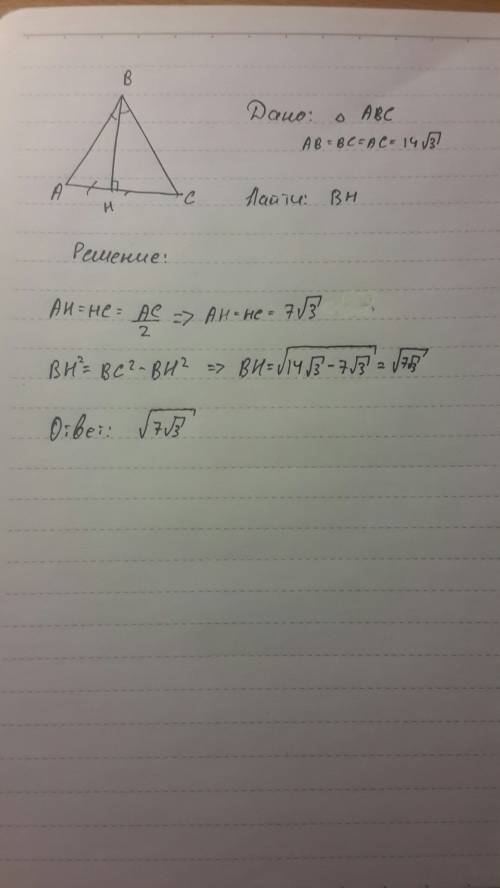 B
Дано: △ ABC
AB = BC = AC = 14√3
A
H
C
Найти: BH
Решение:
AH = HC = AC/2 => AH = HC = 7√3
BH² = BC² - BH² => BH = √(14√3 - 7√3) = √(7√3)
Ответ: √(7√3)